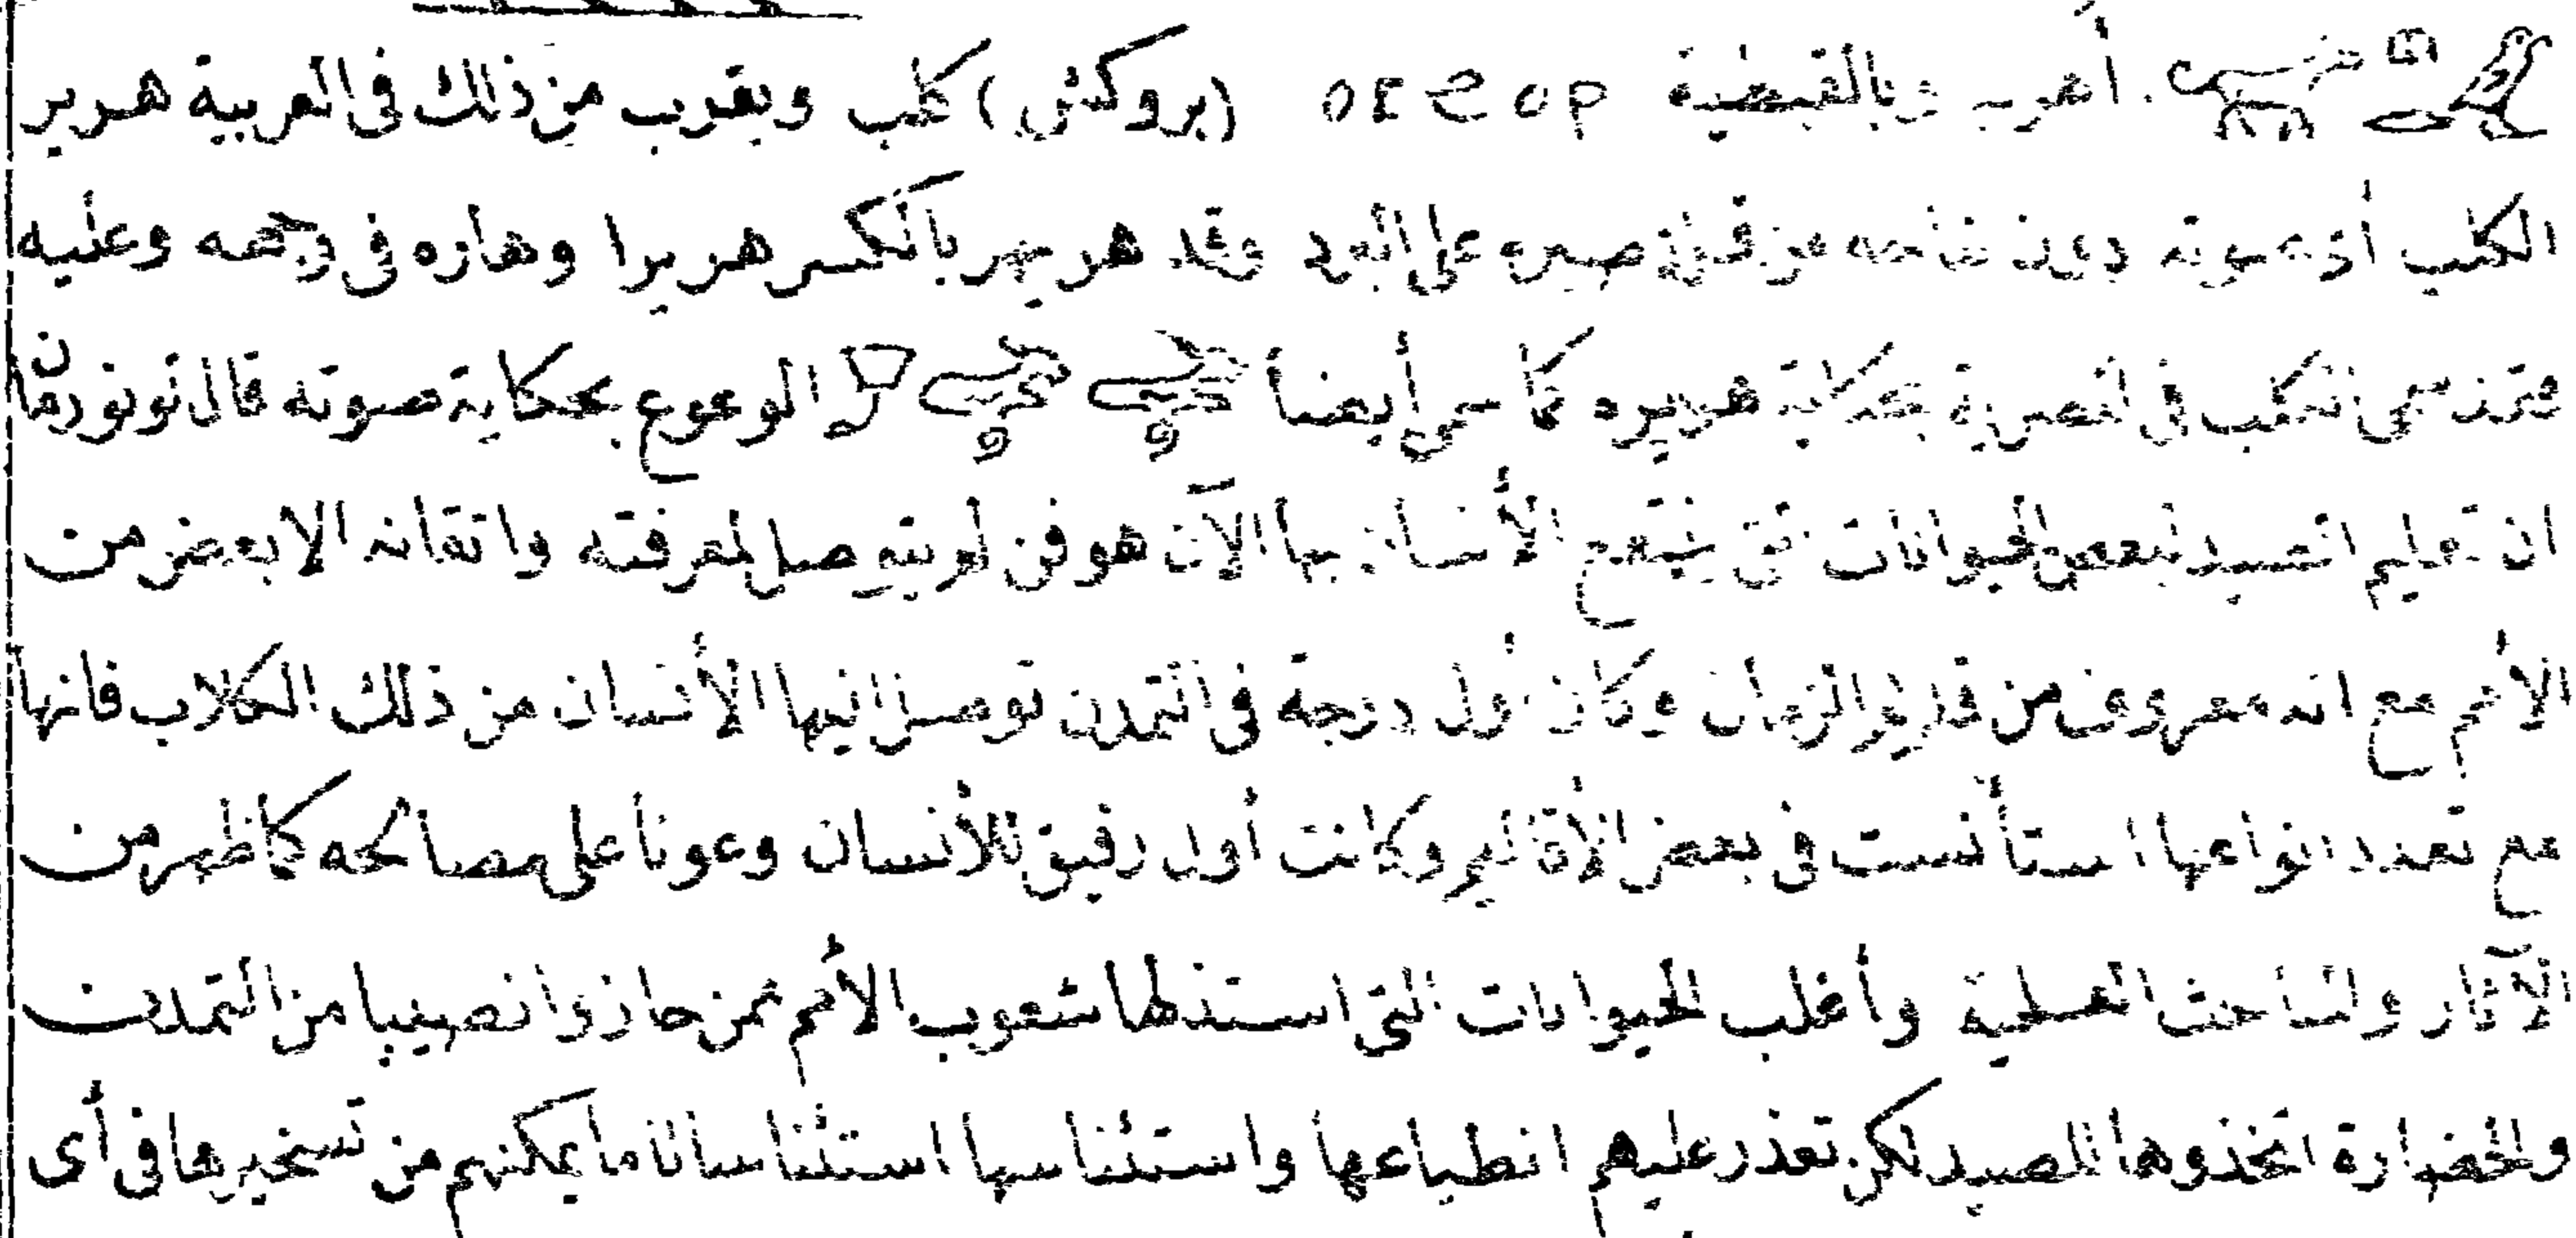 أهر وبالقبطية ⲟⲩϩⲟⲣ (بروكش) كلب ويقرب من ذلك فى العربية هرير
الكلب أى صوته دون نباحه من قلة صبره على البرد وقد هر يهر بالكسر هريرا وهازه فى وجهه وعليه
سمى الكلب فى المصرية بحكاية هريره كما سمى أيضا الوعوع بحكاية صوته قال نونورمان
ان تعليم الصيد لبعض الحيوانات التى ينتفع الأنسان بها الآن هو فن لم يتوصل لمعرفته واتقانه الا بعض من
الأمم مع انه معروف من قديم الزمان وكان أول درجة فى التمدن توصل اليها الأنسان من ذلك الكلاب فانها
مع تعدد انواعها استأنست فى بعض الأقاليم وكانت أول رفيق للأنسان وعونا على مصالحه كما ظهر من
الآثار والمباحث العلمية وأغلب الحيوانات التى استذلها شعوب الأمم ممن حازوا نصيبا من التمدن
والحضارة اتخذوها للصيد لكن تعذر عليهم انطباعها واستئناسها استئناسا تاما يمكنهم من تسخيرها فى أى